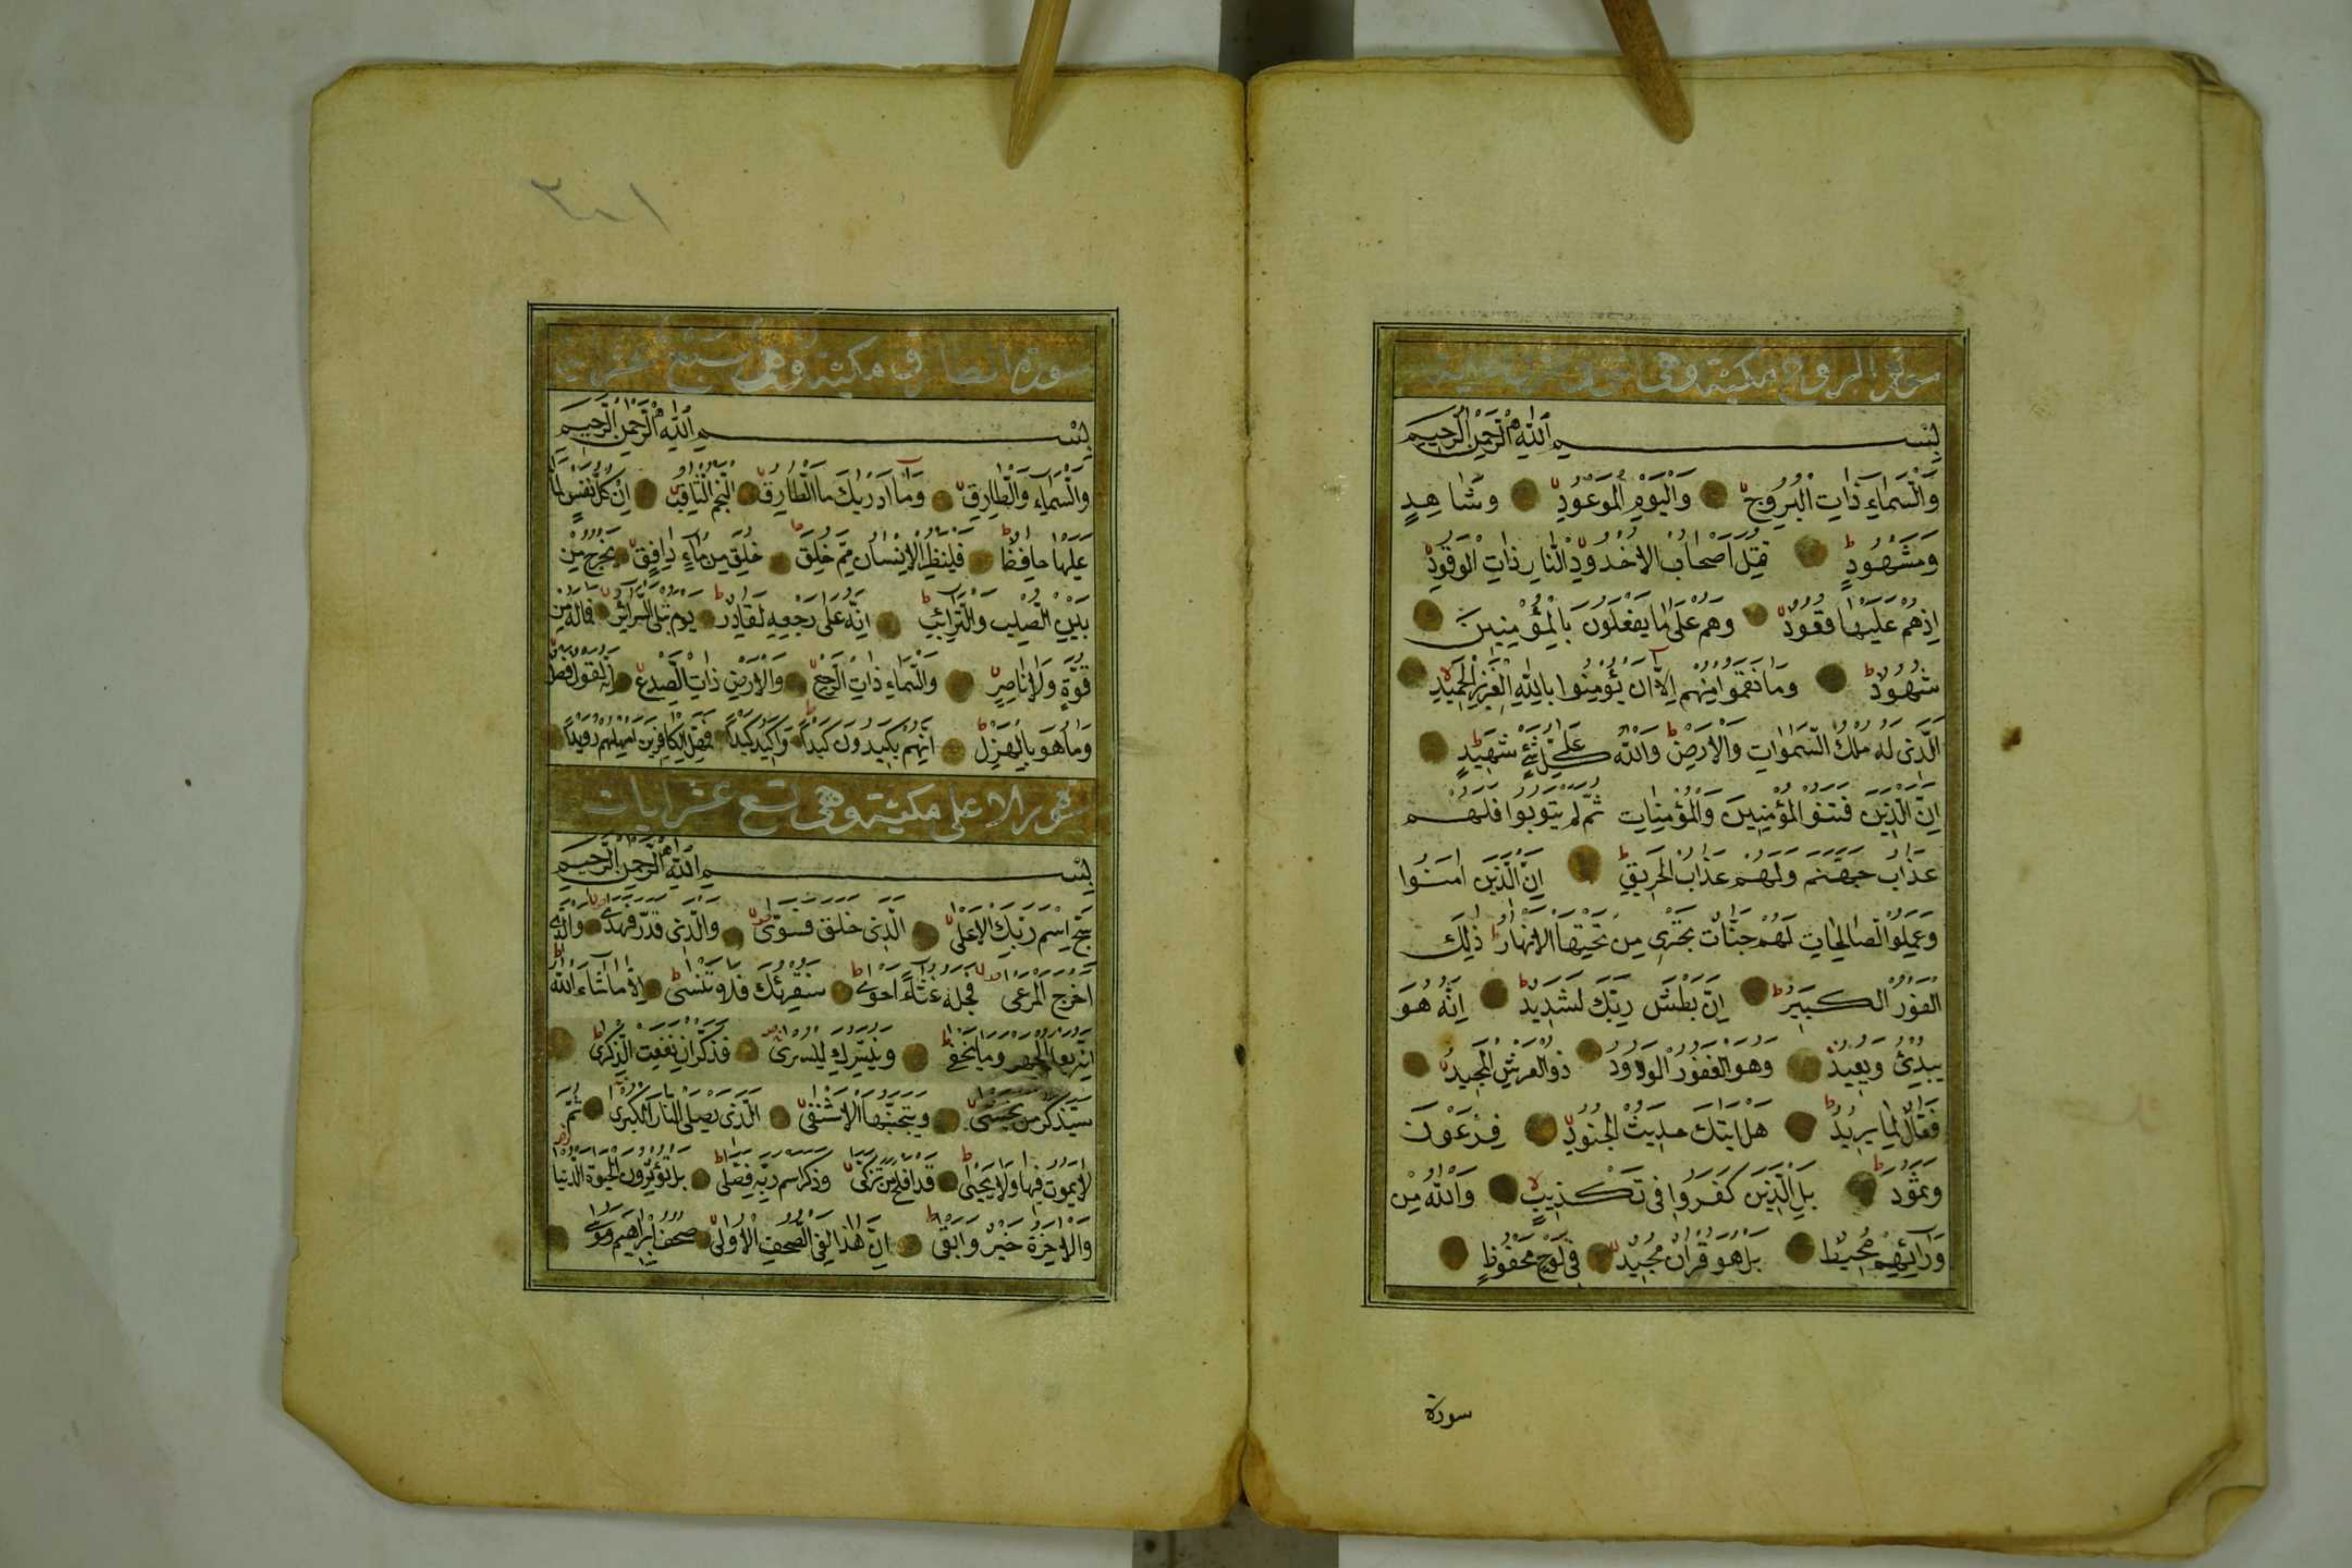 سورة البروج مكية وهي اثنى وعشرون اية
بِسْمِ اللهِ الرَّحْمٰنِ الرَّحِيمِ
وَالسَّمَاءِ ذَاتِ الْبُرُوجِ وَالْيَوْمِ الْمَوْعُودِ وَشَاهِدٍ
وَمَشْهُودٍ قُتِلَ اَصْحَابُ الْاُخْدُودِ النَّارِ ذَاتِ الْوَقُودِ
اِذْ هُمْ عَلَيْهَا قُعُودٌ وَهُمْ عَلٰى مَا يَفْعَلُونَ بِالْمُؤْمِنِينَ
شُهُودٌ وَمَا نَقَمُوا مِنْهُمْ اِلَّا اَنْ يُؤْمِنُوا بِاللهِ الْعَزِيزِ الْحَمِيدِ
الَّذِى لَهُ مُلْكُ السَّمٰوَاتِ وَالْاَرْضِ وَاللهُ عَلٰى كُلِّ شَيْءٍ شَهِيدٌ
اِنَّ الَّذِينَ فَتَنُوا الْمُؤْمِنِينَ وَالْمُؤْمِنَاتِ ثُمَّ لَمْ يَتُوبُوا فَلَهُمْ
عَذَابُ جَهَنَّمَ وَلَهُمْ عَذَابُ الْحَرِيقِ اِنَّ الَّذِينَ اٰمَنُوا
وَعَمِلُوا الصَّالِحَاتِ لَهُمْ جَنَّاتٌ تَجْرِي مِنْ تَحْتِهَا الْاَنْهَارُ ذٰلِكَ
الْفَوْزُ الْكَبِيرُ اِنَّ بَطْشَ رَبِّكَ لَشَدِيدٌ اِنَّهُ هُوَ
يُبْدِئُ وَيُعِيدُ وَهُوَ الْغَفُورُ الْوَدُودُ ذُو الْعَرْشِ الْمَجِيدُ
فَعَّالٌ لِمَا يُرِيدُ هَلْ اَتٰيكَ حَدِيثُ الْجُنُودِ فِرْعَوْنَ
وَثَمُودَ بَلِ الَّذِينَ كَفَرُوا فِى تَكْذِيبٍ وَاللهُ مِنْ
وَرَائِهِمْ مُحِيطٌ بَلْ هُوَ قُرْاٰنٌ مَجِيدٌ فِى لَوْحٍ مَحْفُوظٍ
سورة
٣٠١
سورة الطارق مكية وهي سبع عشر اية
بِسْمِ اللهِ الرَّحْمٰنِ الرَّحِيمِ
وَالسَّمَاءِ وَالطَّارِقِ وَمَا اَدْرٰيكَ مَا الطَّارِقُ النَّجْمُ الثَّاقِبُ اِنْ كُلُّ نَفْسٍ لَمَّا
عَلَيْهَا حَافِظٌ فَلْيَنْظُرِ الْاِنْسَانُ مِمَّ خُلِقَ خُلِقَ مِنْ مَاءٍ دَافِقٍ يَخْرُجُ مِنْ
بَيْنِ الصُّلْبِ وَالتَّرَائِبِ اِنَّهُ عَلٰى رَجْعِهِ لَقَادِرٌ يَوْمَ تُبْلَى السَّرَائِرُ فَمَالَهُ مِنْ
قُوَّةٍ وَلَا نَاصِرٍ وَالسَّمَاءِ ذَاتِ الرَّجْعِ وَالْاَرْضِ ذَاتِ الصَّدْعِ اِنَّهُ لَقَوْلٌ فَصْلٌ
وَمَا هُوَ بِالْهَزْلِ اِنَّهُمْ يَكِيدُونَ كَيْداً وَاَكِيدُ كَيْداً فَمَهِّلِ الْكَافِرِينَ اَمْهِلْهُمْ رُوَيْداً
سورة الاعلى مكية وهي تسع عشر ايات
بِسْمِ اللهِ الرَّحْمٰنِ الرَّحِيمِ
سَبِّحِ اسْمَ رَبِّكَ الْاَعْلٰى الَّذِى خَلَقَ فَسَوّٰى وَالَّذِى قَدَّرَ فَهَدٰى وَالَّذِى
اَخْرَجَ الْمَرْعٰى فَجَعَلَهُ غُثَاءً اَحْوٰى سَنُقْرِئُكَ فَلَا تَنْسٰى اِلَّا مَا شَاءَ اللهُ
اِنَّهُ يَعْلَمُ الْجَهْرَ وَمَا يَخْفٰى وَنُيَسِّرُكَ لِلْيُسْرٰى فَذَكِّرْ اِنْ نَفَعَتِ الذِّكْرٰى
سَيَذَّكَّرُ مَنْ يَخْشٰى وَيَتَجَنَّبُهَا الْاَشْقٰى الَّذِى يَصْلَى النَّارَ الْكُبْرٰى ثُمَّ
لَا يَمُوتُ فِيهَا وَلَا يَحْيٰى قَدْ اَفْلَحَ مَنْ تَزَكّٰى وَذَكَرَ اسْمَ رَبِّهِ فَصَلّٰى بَلْ تُؤْثِرُونَ الْحَيٰوةَ الدُّنْيَا
وَالْاٰخِرَةُ خَيْرٌ وَاَبْقٰى اِنَّ هٰذَا لَفِى الصُّحُفِ الْاُولٰى صُحُفِ اِبْرٰهِيمَ وَمُوسٰى